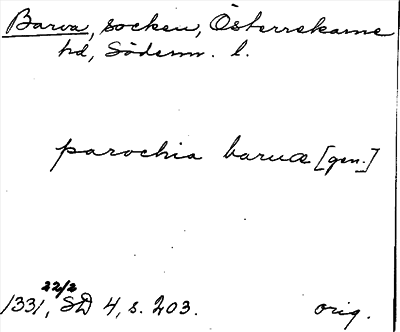 Barva, socken, Österrekarne
hd, Södermr. l.
parochia barua [gen.]
22/2
1331, SD 4, s. 203. orig.